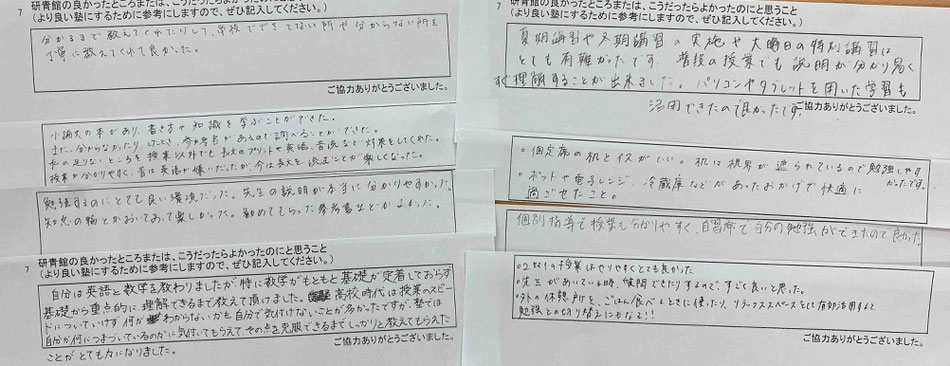 7 研青館の良かったところまたは、こうだったらよかったのにと思うこと
(より良い塾にするために参考にしますので、ぜひ記入してください。)
分かるまで教えてくれたりして、学校でできてない所や分からない所を
丁寧に教えてくれて良かった。
ご協力ありがとうございました。
小論文の本があり、書き方や知識を学ぶことができた。
また、分からなかったりしたとき、参考書があるので調べることができた。
私の足りないところを授業以外でも長文のプリントや英語、音読など対策をしてくれた。
授業が分かりやすく、昔は英語が嫌いだったが今は長文を読むことが楽しくなった。
勉強するのにとても良い環境だった。先生の説明が本当に分かりやすかった。
知恵の輪とかおいてあって楽しかった。勧めてもらった参考書などがよかった。
7 研青館の良かったところまたは、こうだったらよかったのにと思うこと
(より良い塾にするために参考にしますので、ぜひ記入してください。)
自分は英語と数学を教わりましたが、特に数学がもともと基礎が定着しておらず
基礎から重点的に理解できるまで教えて頂けました。高校時代は授業のスピー
ドについていけず何がわからないかも自分で気付けないことが多かったですが、塾では
自分が何につまづいているのかに気付いてもらえてその点を克服できるまでしっかりと教えてもらえた
ことがとても力になりました。
ご協力ありがとうございました。
7 研青館の良かったところまたは、こうだったらよかったのにと思うこと
(より良い塾にするために参考にしますので、ぜひ記入してください。)
夏期講習や冬期講習の実施や大晦日の特別講習は
とても有難かったです。普段の授業でも説明が分かり易く
すぐ理解することが出来ました。パソコンやタブレットを用いた学習も
活用できたので良かったです。
ご協力ありがとうございました。
。個定席の机とイスがいい。机は視界が遮られているので勉強しやす
かったです。
。ポットや電子レンジ、冷蔵庫などがあったおかげで快適に
過ごせたこと。
個別指導で授業も分かりやすく、自習席で自分の勉強ができたので良かった。
○2対1の授業はやりやすくとても良かった。
○先生があいている時、質問できたりするので、すごく良いと思った。
○外の休憩所を、ごはん食べるときに使ったり、リラックススペースとして有効活用すると
勉強との切り替えにもなる!!
ご協力ありがとうございました。